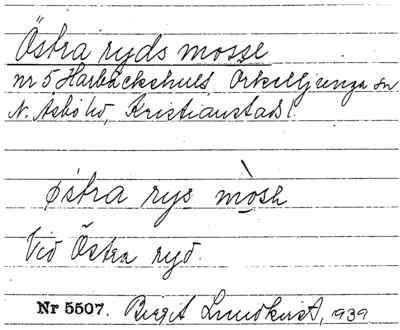 Östra ryds mosse
nr 5 Harbäckshult, Örkelljunga sn
N. Åsbo hd, Kristianstads l.
østra rys mòsh
Vid Östra ryd.
Nr 5507. Birgit Lundkvist, 1939